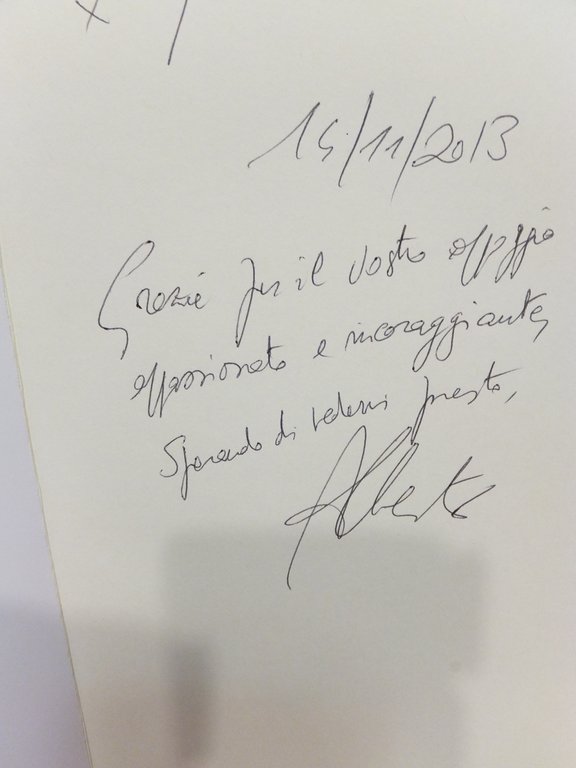 14/11/2013
Grazie per il vostro appoggio
appassionato e incoraggiante,
Sperando di vedervi presto,
Alberto